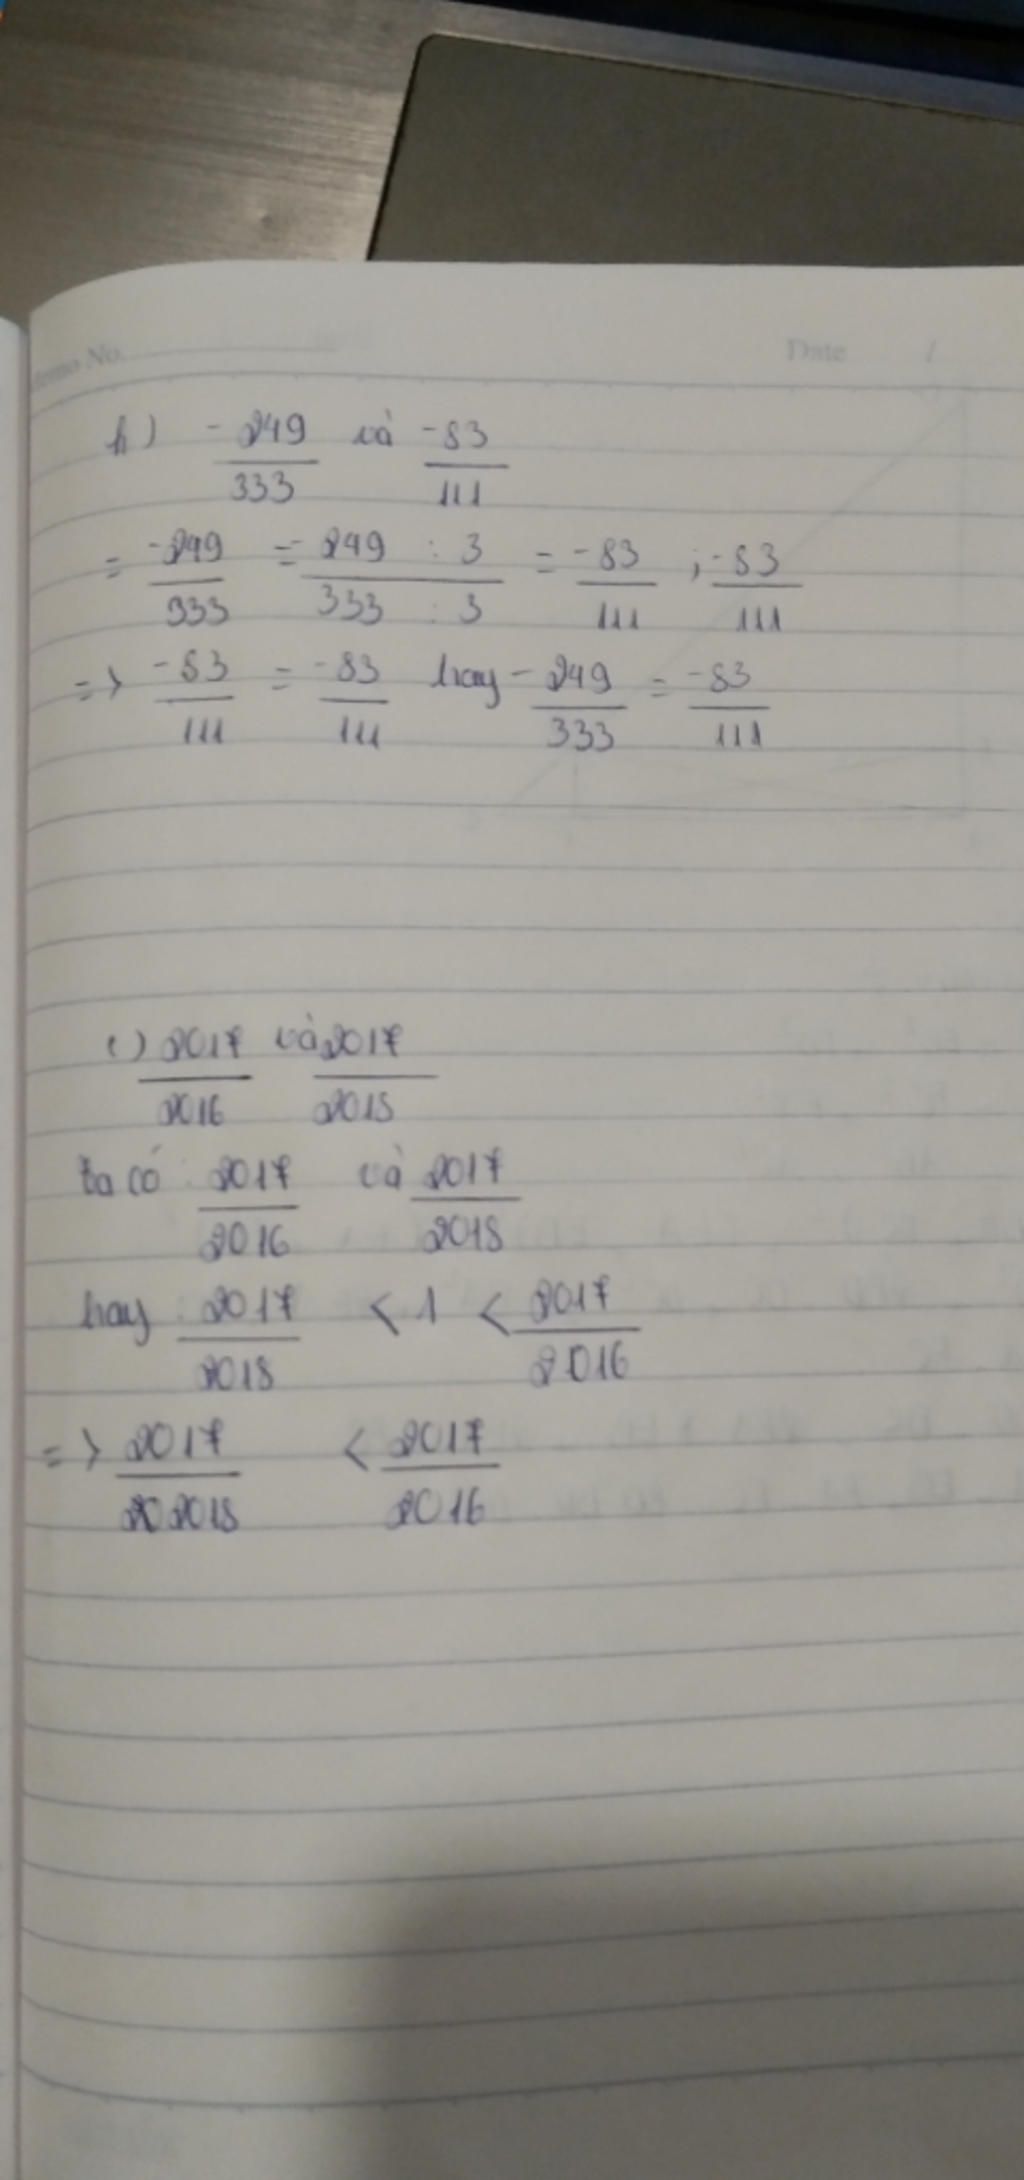 Memo No. Date /
h) -249/333 và -83/111
= -249/333 = -249 : 3/333 : 3 = -83/111 ; -83/111
=> -83/111 = -83/111 hay -249/333 = -83/111
i) 2017/2016 và 2017/2018
ta có : 2017/2016 và 2017/2018
hay : 2017/2018 < 1 < 2017/2016
=> 2017/202018 < 2017/2016